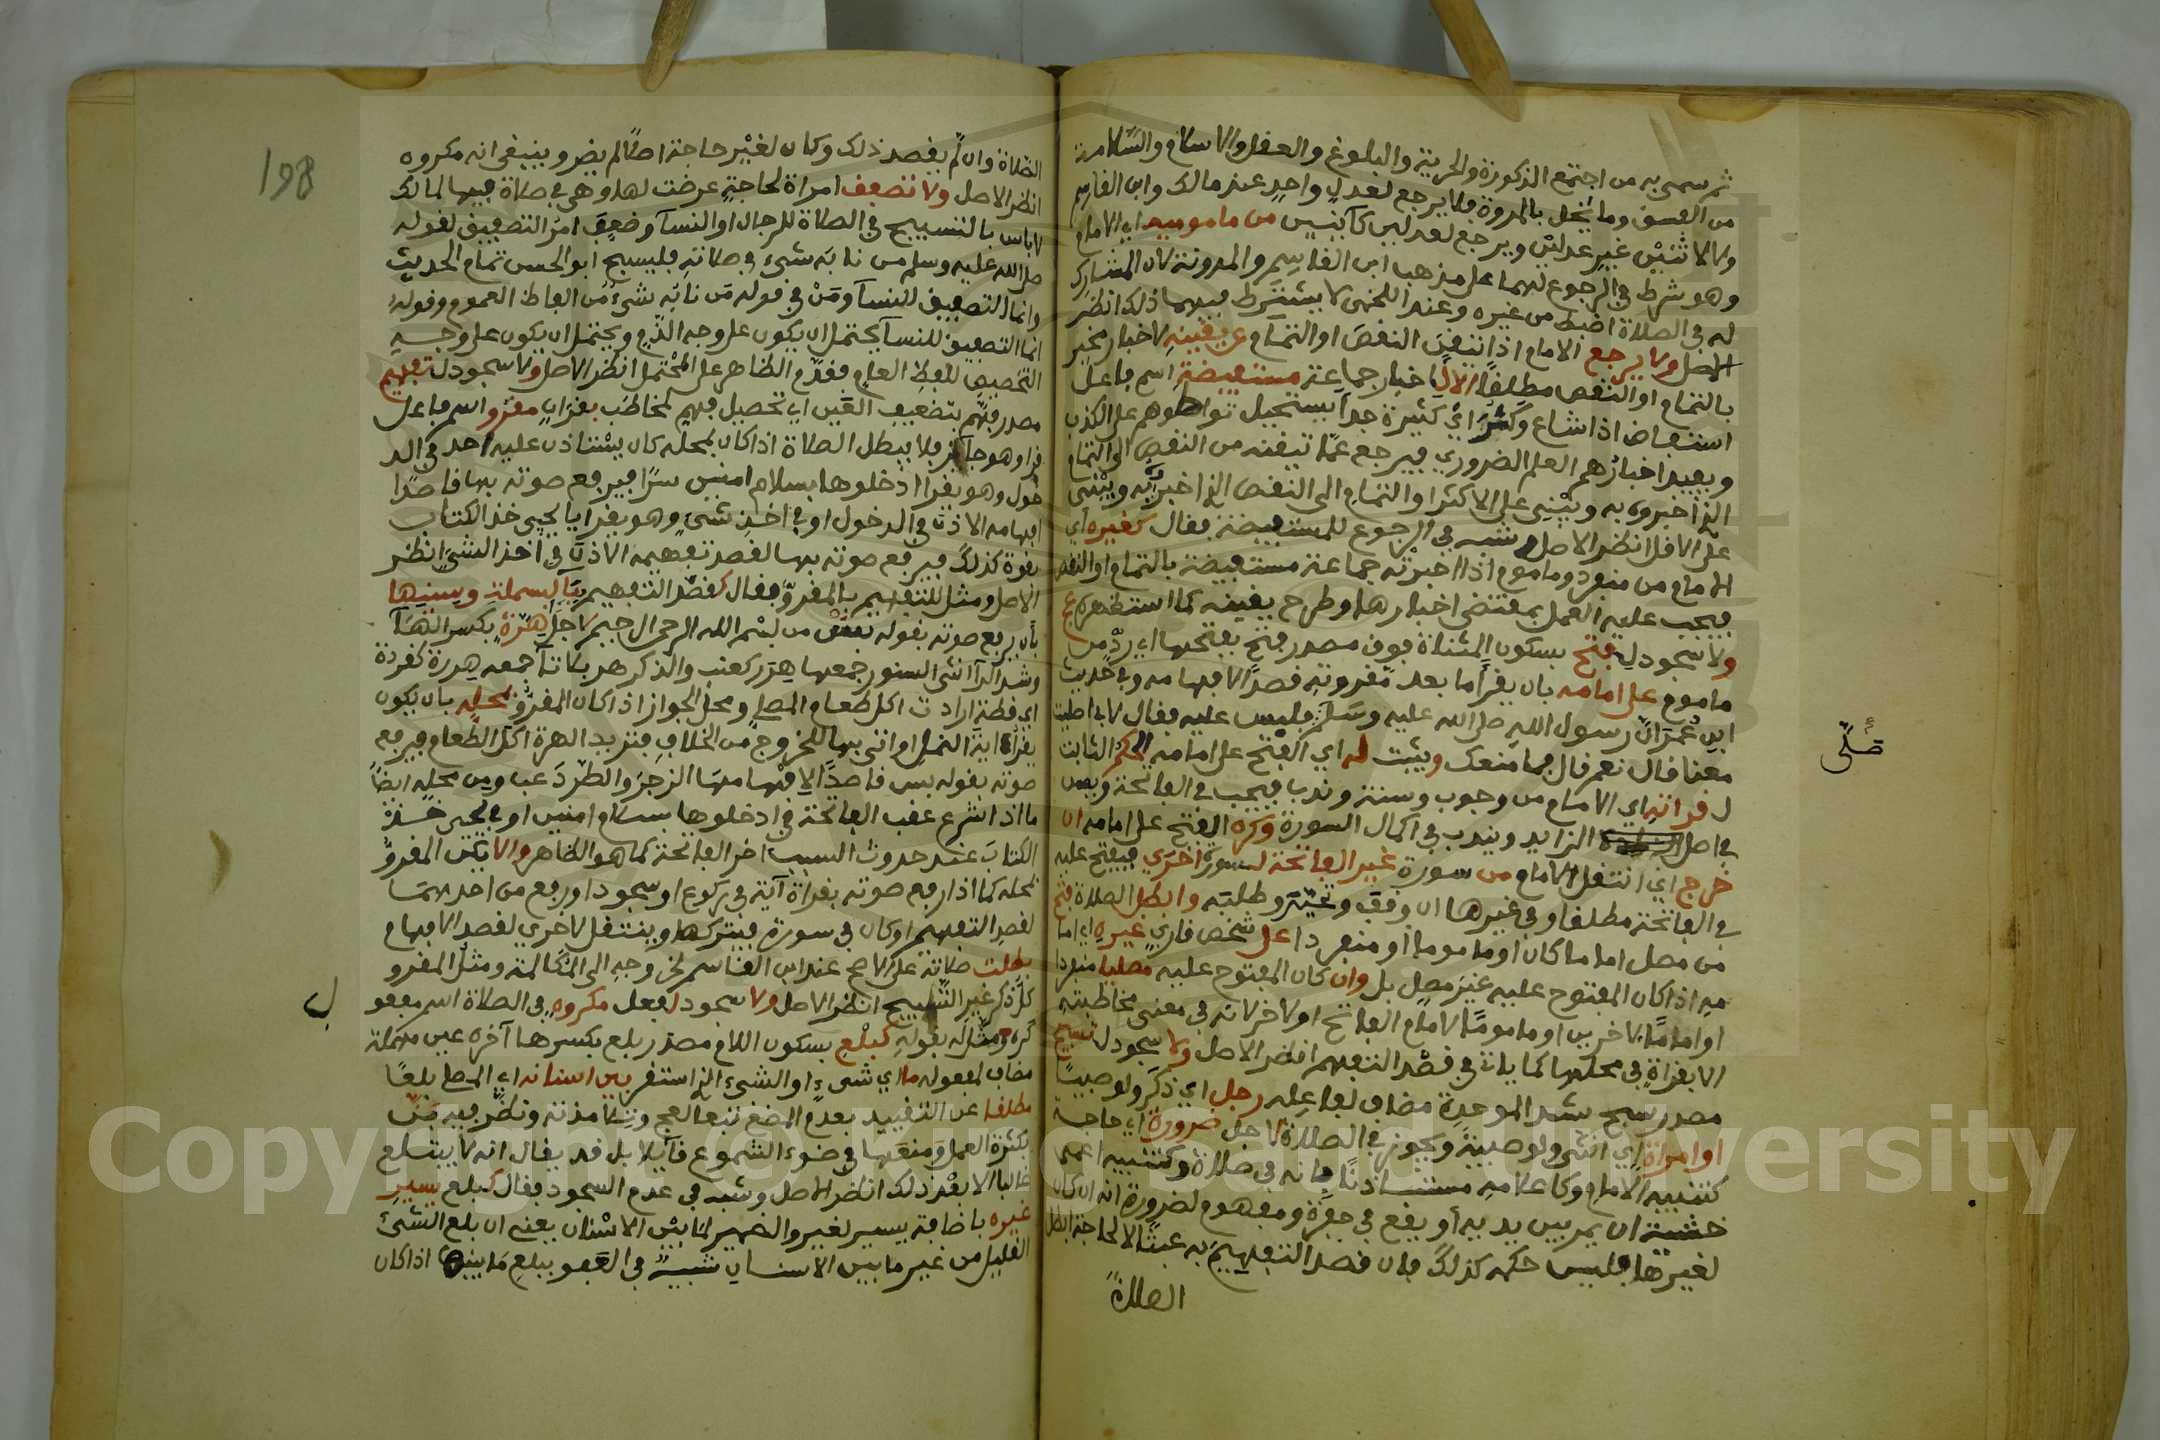 ثم سمى به من اجتمع الذكورة والحرية والبلوغ والعقل والاسلام والسلامة
من الفسق وما يخل بالمروة فلا يرجع لعدل واحد عند مالك وابن القاسم
ولا لاثنين غير عدلين ويرجع لعدلين كائنين من ماموميه اي الامام
وهو شرط في الرجوع لهما على مذهب ابن القاسم والمدونة لان المشارك
له في الصلاة اضبط من غيره وعند اللخمي لا يشترط فيهما ذلك انظر
الاصل ولا يرجع الامام اذا تيقن النقص او التمام عن يقينه لاخبار مخبر
بالتمام او النقص مطلقا الا لاخبار جماعة مستفيضة اسم فاعل
استفاض اذا شاع وكثر اي كثيرة جدا يستحيل تواطوهم على الكذب
ويفيد اخبارهم العلم الضروري فيرجع عما تيقنه من النقص الى التمام
الذي اخبروه به ويبني على الاكثر او التمام الى النقص الذي اخبر به ويبني
على الاقل انظر الاصل وشبه في الرجوع للمستفيضة فقال كغيره اي
الامام من منفرد وماموم اذا اخبرته جماعة مستفيضة بالتمام او النقص
فيجب عليه العمل بمقتضى اخبارها وطرح يقينه كما استظهره عج
ولا سجود لفتح بسكون المثناة فوق مصدر فتح بفتحها اي رد من
ماموم على امامه بان يقرأ ما بعد مقروته قصد الافهامه وفي حديث
ابن عمران رسول الله صلى الله عليه وسلم فلبس عليه فقال لابي اصليت
صلى
معنا قال نعم قال فما منعك ويثبت له اي الفتح على امامه الحكم الثابت
لقراته اي الامام من وجوب وسنة وندب فيجب في الفاتحة ويسن
في اصل الزايد ويندب في اكمال السورة وكره الفتح على امامه ان
خرج اي انتقل الامام من سورة غير الفاتحة لسورة اخرى فيفتح عليه
في الفاتحة مطلقا وفي غيرها ان وقف وتحير وطلبه وابطل الصلاة فتح
من مصل اماما كان او ماموما او منفردا على شخص قاري غيره اي اما
مه اذا كان المفتوح عليه غير مصل بل وان كان المفتوح عليه مصليا منفردا
او اماما لاخرين او ماموما لامام الفاتح او لاخر لانه في معنى مخاطبته
الا بقراة في محلها كما ياتي في قصد التفهم انظر الاصل ولا سجود لتسبيح
مصدر سبح بشد الموحدة مضاف لفاعله رجل اي ذكر ولو صبيا
او امراة اي انثى ولو صبية ويجوز في الصلاة لاجل ضرورة اي حاجة
كتنبيه الامام وكاعلامه مستاذنا بانه في صلاة وكتنبيه اعمى
خشية ان يمر بين يديه او يقع في حفرة ومفهوم لضرورة انه ان كان
لغيرها فليس حكمه كذلك فان قصد التفهيم به عبثا لا لحاجة ابطل
الصلاة
198
الصلاة وان لم يقصد ذلك وكان لغير حاجة اصلا لم يضر وينبغي انه مكروه
انظر الاصل ولا تصفق امراة لحاجة عرضت لها وهي في صلاة فيها لمالك
لا باس بالتسبيح في الصلاة للرجال او النسا وضعف امر التصفيق لقوله
صلى الله عليه وسلم من نابه شيء في صلاته فليسبح ابو الحسن تمام الحديث
وانما التصفيق للنسا ومن في قوله من نابه شيء من الفاظ العموم وقوله
انما التصفيق للنسا يحتمل ان يكون على وجه الذم ويحتمل ان يكون على وجه
التخصيص للفظ العام فقدم الظاهر على المحتمل انظر الاصل ولا سجود لتفهيم
مصدر فهم بتضعيف العين اي تحصيل فهم لمخاطب بقراة مقرو اسم فاعل
قرا وهو جائز فلا يبطل الصلاة اذا كان بمحله كان يستاذن عليه احد في الد
خول وهو يقرا ادخلوها بسلام امنين سرا فيرفع صوته بها قاصدا
افهامه الاذن في الدخول او في اخذ شيء وهو يقرا يا يحيى خذ الكتاب
بقوة كذلك فيرفع صوته بها لقصد تفهيمه الاذن في اخذ الشيء انظر
الاصل ومثل للتفهيم بالمقرو فقال كقصد التفهيم بالبسملة وبسينها
بان يرفع صوته بقوله بس من بسم الله الرحمن الرحيم لاجل هرة بكسر الها
وشد الرا انثى السنور جمعها هرر كعنب والذكر هر بلا تا جمعه هررة كقردة
اي قطة ارادت اكل طعام المصلي ومحل الجواز اذا كان المقرو بمحله بان يكون
يقرا اية النمل او اتى بها للخروج من الخلاف فتريد الهرة اكل الطعام فيرفع
صوته بقوله بس قاصدا لافهامها الزجر والطرد عب ومن محله ايضا
ما اذا شرع عقب الفاتحة في ادخلوها بسلام امنين او في يحيى خذ
الكتاب عند حدوث السبب اخر الفاتحة كما هو الظاهر والا يكن المقرو
بمحله كما اذا رفع صوته بقراة آية في ركوع او سجود او رفع من احدهما
لقصد التفهيم او كان في سورة فيتركها وينتقل لاخرى لقصد الافهام
بطلت صلاته على الاصح عند ابن القاسم لخروجه الى المكالمة ومثل المقرو
كل ذكر غير التسبيح انظر الاصل ولا سجود لفعل مكروه في الصلاة اسم مفعو
ل
كره ومثل له بقوله كبلع بسكون اللام مصدر بلع بكسرها آخره عين مهملة
مضاف لمفعوله ما اي شيء او الشيء الذي استقر بين اسنانه اي المصلي بلعا
مطلقا عن التقييد بعدم المضغ تبعا لعج وتلامذته ونظر فيه بن
بكثرة العمل ومنعها في ضوء الشموع قائلا بل قد يقال انه لا يبتلع
غالبا الا بعد ذلك انظر الاصل وشبه في عدم السجود فقال كبلع يسير
غيره باضافة يسير لغير والضمير لما بين الاسنان يعني ان بلع الشيء
القليل من غير ما بين الاسنان شبيه في العفو ببلع ما بينها اذا كان
Copyright © King Saud University